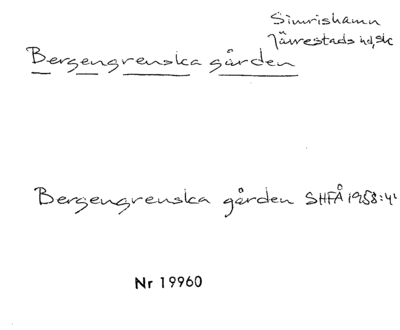 Simrishamn
Järrestads hd, Sk
Bergengrenska gården
Bergengrenska gården SHFÅ 1958:41
Nr 19960